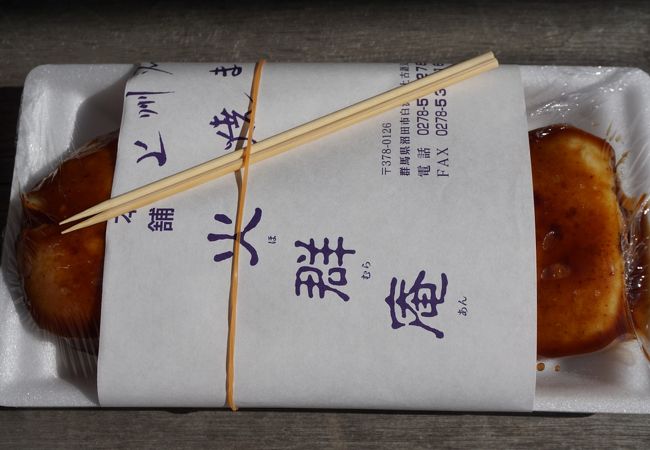 上州
焼ま
本舗
火群庵
ほむらあん
〒378-0126
群馬県沼田市白
電話 0278-5
FAX 0278-53